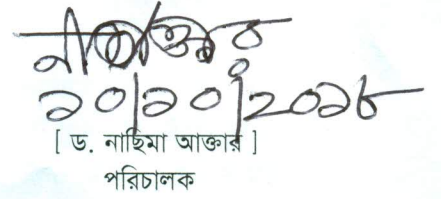 ১০/১০/২০১৮
[ ড. নাছিমা আক্তার ]
পরিচালক